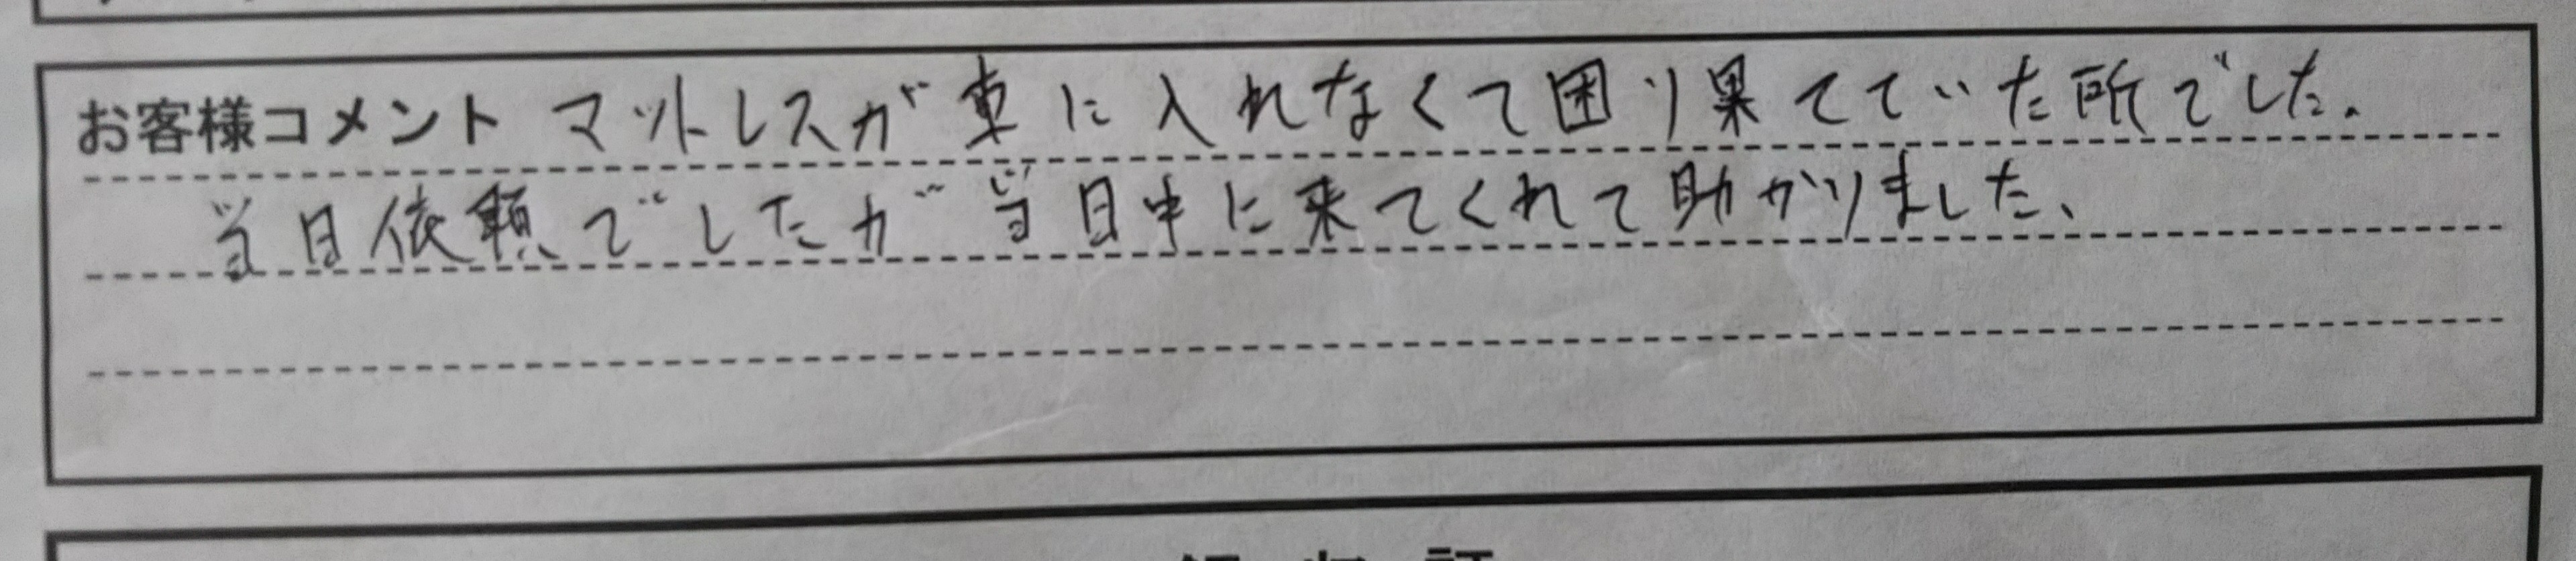 お客様コメント マットレスが車に入れなくて困り果てていた所でした.
当日依頼でしたが当日中に来てくれて助かりました、